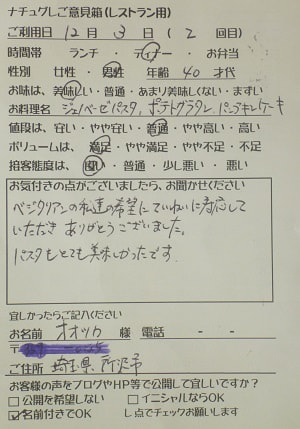 ナチュグしご意見箱(レストラン用)
ご利用日 12月 3日 ( 2 回目)
時間帯 ランチ・ディナー・お弁当
性別 女性・男性 年齢 40 才代
お味は、美味しい・普通・あまり美味しくない・まずい
お料理名 ジェノベーゼパスタ、ポテトグラタン パンプキンケーキ
値段は、安い・やや安い・普通・やや高い・高い
ボリュームは、満足・やや満足・やや不足・不足
接客態度は、良い・普通・少し悪い・悪い
お気付きの点がございましたら、お聞かせください
ベジタリアンの私達の希望にていねいに対応して
いただき ありがとうございました。
パスタもとても美味しかったです。
宜しかったらご記入ください
お名前 オオツカ 様 電話 - -
〒
ご住所 埼玉県 所沢市
お客様の声をブログやHP等で公開して宜しいですか?
□公開を希望しない □イニシャルならOK
☑名前付きでOK し点でチェックお願いします